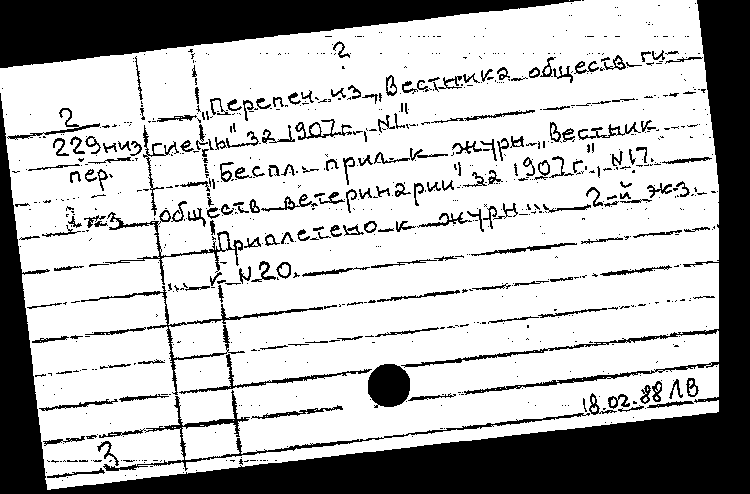 2
2 „Перепеч. из „Вестника обществ. ги-
229низ гиены" за 1907г., N1"
пер. „Беспл. прил. к журн. „Вестник
2 экз. обществ. ветеринарии" за 1907г.", N17.
Приплетено к журн... 2-й экз.
... к N20.
18.02.88 ЛВ
3